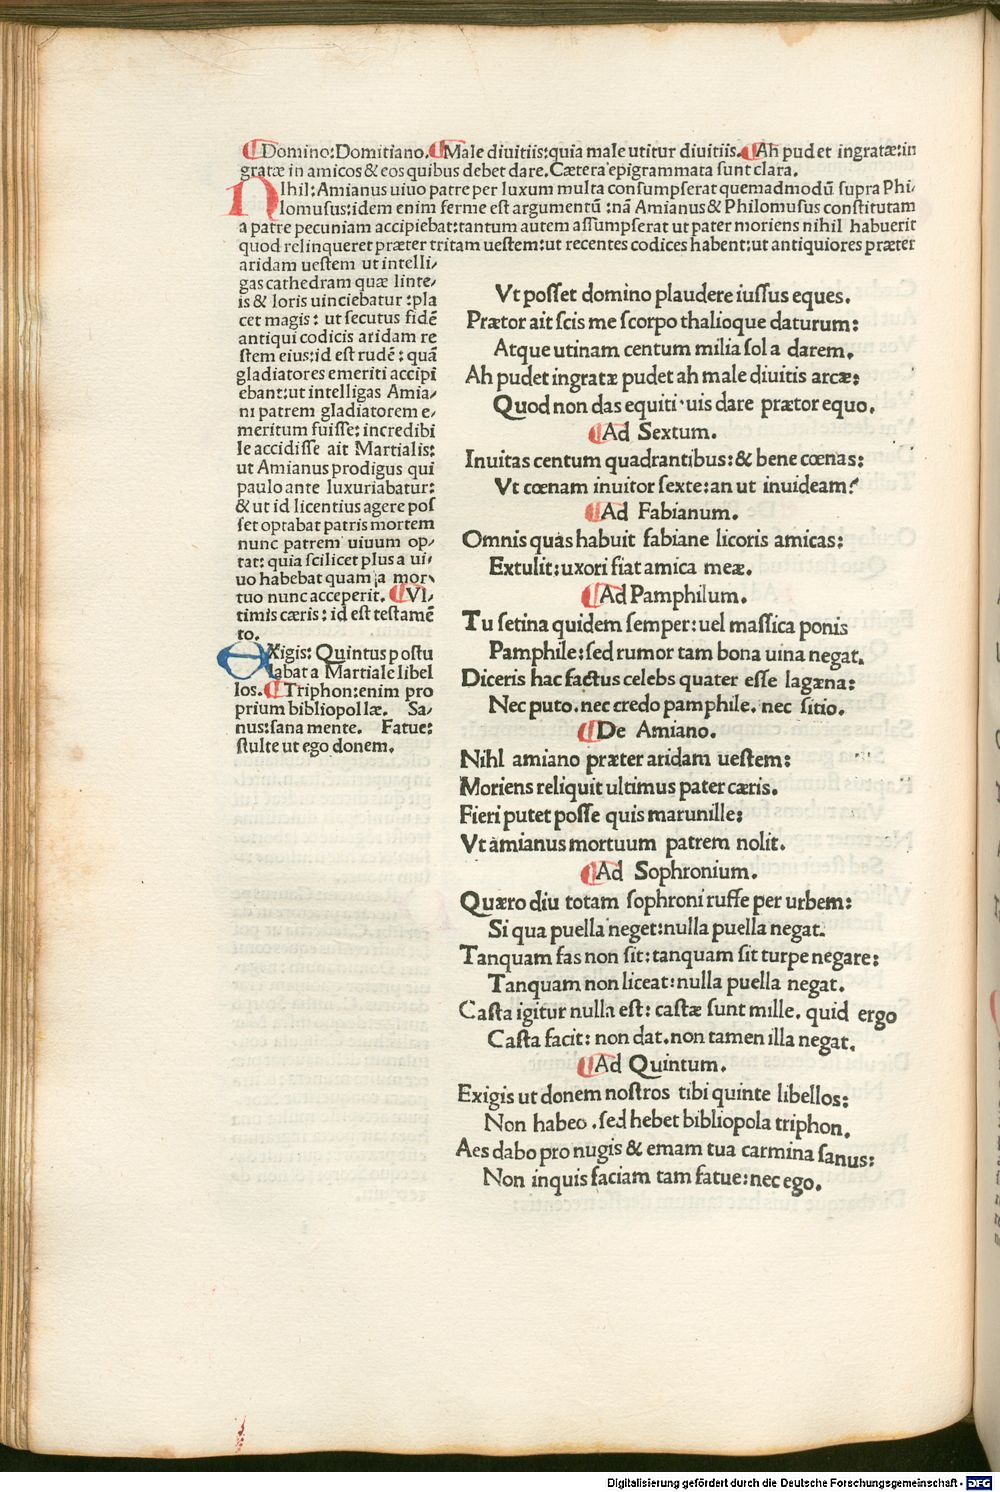 Domino:Domitiano. Male diuitiis:quia male utitur diuitiis. Ah pudet ingratæ:in
gratæ in amicos & eos quibus debet dare. Cætera epigrammata sunt clara.
NIhil: Amianus uiuo patre per luxum multa consumpserat quemadmodū supra Phi/
lomusus:idem enim ferme est argumentū :nā Amianus & Philomusus constitutam
a patre pecuniam accipiebat:tantum autem assumpserat ut pater moriens nihil habuerit
quod relinqueret præter tritam uestem:ut recentes codices habent:ut antiquiores præter
aridam uestem ut intelli/
gas cathedram quæ linte/
is & loris uinciebatur :pla
cet magis: ut secutus fidē
antiqui codicis aridam re
stem eius:id est rudē: quā
gladiatores emeriti accipi
ebant:ut intelligas Amia/
ni patrem gladiatorem e/
meritum fuisse: incredibi
le accidisse ait Martialis:
ut Amianus prodigus qui
paulo ante luxuriabatur:
& ut id licentius agere pos
set optabat patris mortem
nunc patrem uiuum op/
tat: quia scilicet plus a ui/
uo habebat quam ia mor
tuo nunc acceperit. Vl/
timis cæris: id est testamē
to.
EXigis: Quintus postu
labat a Martiale libel
los. Triphon:enim pro
prium bibliopollæ. Sa/
nus:sana mente. Fatue:
stulte ut ego donem.
Vt posset domino plaudere iussus eques.
Prætor ait scis me scorpo thalioque daturum:
Atque utinam centum milia sola darem.
Ah pudet ingratæ pudet ah male diuitis arcæ:
Quod non das equiti uis dare prætor equo.
Ad Sextum.
Inuitas centum quadrantibus: & bene cœnas:
Vt cœnam inuitor sexte:an ut inuideam?
Ad Fabianum.
Omnis quas habuit fabiane licoris amicas:
Extulit:uxori fiat amica meæ.
Ad Pamphilum.
Tu setina quidem semper:uel massica ponis
Pamphile:sed rumor tam bona uina negat.
Diceris hac factus celebs quater esse lagæna:
Nec puto.nec credo pamphile.nec sitio.
De Amiano.
Nihl amiano præter aridam uestem:
Moriens reliquit ultimus pater cæris.
Fieri putet posse quis marunille:
Vt amianus mortuum patrem nolit.
Ad Sophronium.
Quæro diu totam sophroni ruffe per urbem:
Si qua puella neget:nulla puella negat.
Tanquam fas non sit:tanquam sit turpe negare:
Tanquam non liceat:nulla puella negat.
Casta igitur nulla est: castæ sunt mille. quid ergo
Casta facit: non dat.non tamen illa negat.
Ad Quintum.
Exigis ut donem nostros tibi quinte libellos:
Non habeo .sed hebet bibliopola triphon.
Aes dabo pro nugis & emam tua carmina sanus:
Non inquis faciam tam fatue:nec ego.
Digitalisierung gefördert durch die Deutsche Forschungsgemeinschaft - DFG